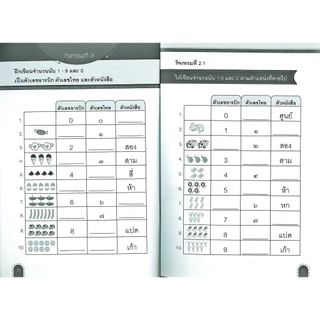 กิจกรรมที่ 2
ฝึกเขียนจำนวนนับ 1 - 9 และ 0
เป็นตัวเลขฮินดูอารบิก ตัวเลขไทย และตัวหนังสือ
ตัวเลขอารบิก ตัวเลขไทย ตัวหนังสือ
1. 0 ๐
2. ๑
3. 2 สอง
4. 3 สาม
5. 4 สี่
6. ห้า
7. 6 ๖
8. ๗
9. 8 แปด
10. เก้า
กิจกรรมที่ 2.1
ให้เขียนจำนวนนับ 1-9 และ 0 ตามตำแหน่งที่หายไป
ตัวเลขอารบิก ตัวเลขไทย ตัวหนังสือ
1. 0 ศูนย์
2. 1 ๑
3. ๒ สอง
4. 3 ๓
5. 4
6. 5 ห้า
7. ๖ หก
8. ๗
9. 8 แปด
10. 9 เก้า